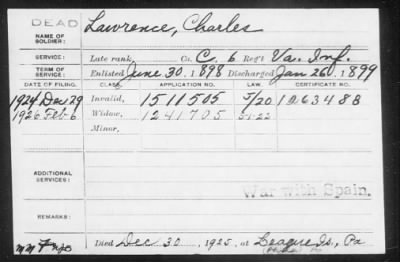 DEAD
NAME OF SOLDIER: Lawrence, Charles
SERVICE: Late rank, Co. C. 6 Reg't Va. Inf.
TERM OF SERVICE: Enlisted June 30, 1898 Discharged Jan 26, 1899
DATE OF FILING. CLASS. APPLICATION NO. LAW. CERTIFICATE NO.
1924 Dec 29 Invalid, 1511505 5/20 1263488
1926 Feb 6 Widow, 1241705 5-1-22
Minor,
ADDITIONAL SERVICES:
War with Spain.
Died Dec 30, 1925, at League Is, Pa